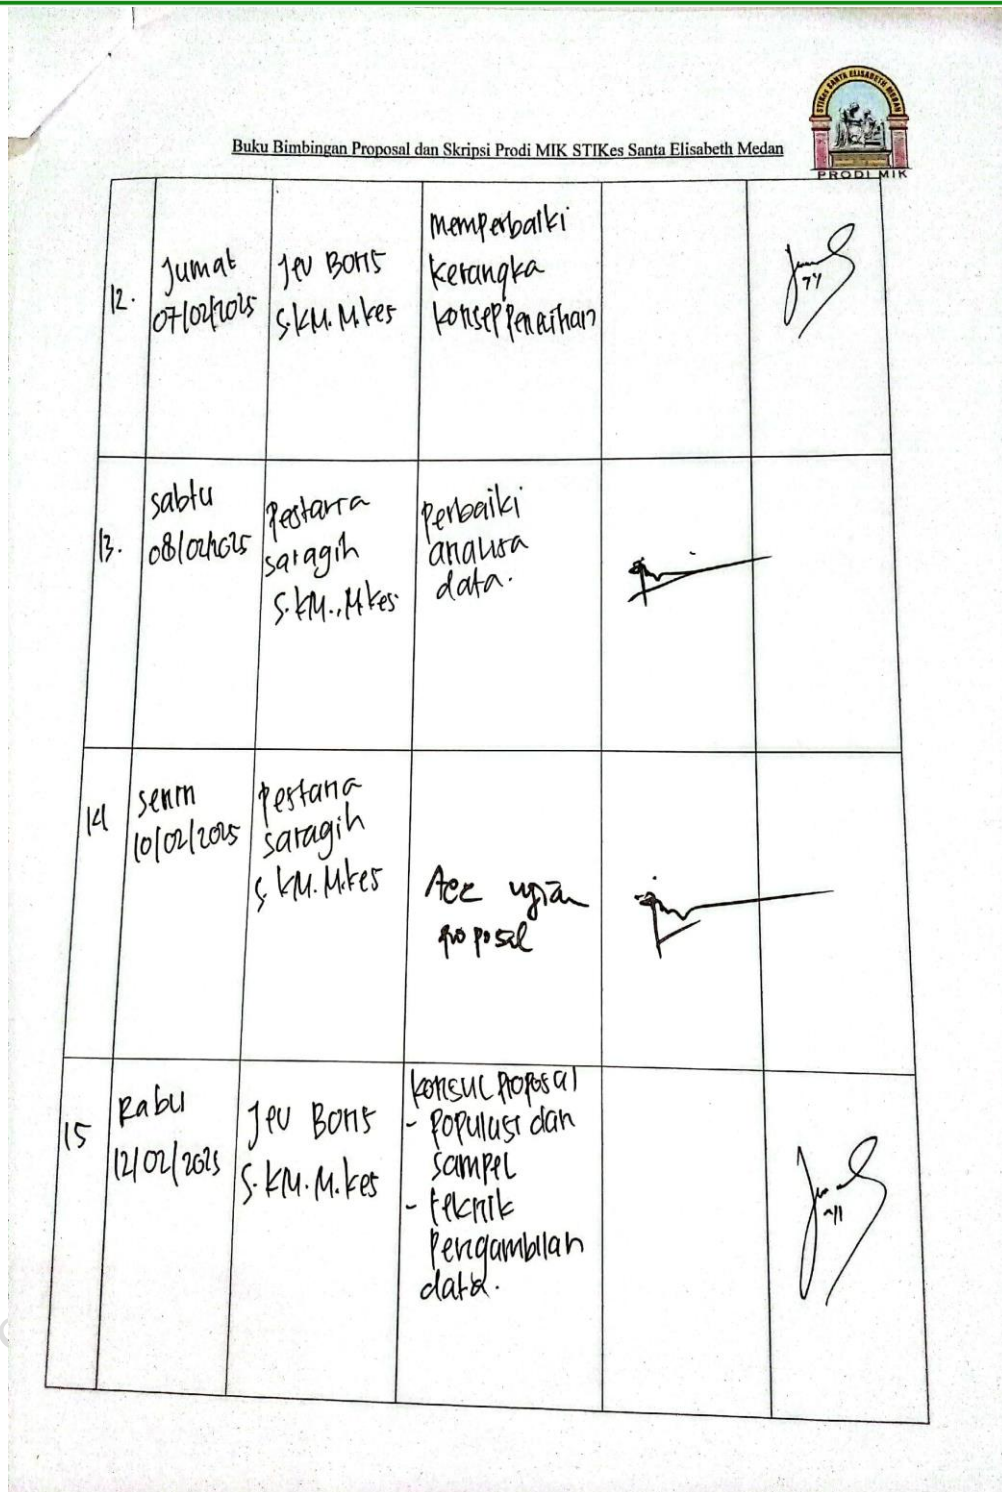 STIKes SANTA ELISABETH MEDAN
PRODI MIK
Buku Bimbingan Proposal dan Skripsi Prodi MIK STIKes Santa Elisabeth Medan
12.
Jumat
07/02/2025
Jev Boris
S.KM. M.kes
Memperbaiki
kerangka
konsep penelitian
13.
Sabtu
08/02/2025
Pestaria
saragih
S.KM., M.kes.
Perbaiki
analisa
data.
14
Senin
10/02/2025
Pestaria
saragih
S.KM. M.kes
Acc ujian
proposal
15
Rabu
12/02/2025
Jev Boris
S.KM. M.kes
konsul proposal
- populasi dan
sampel
- teknik
pengambilan
data.